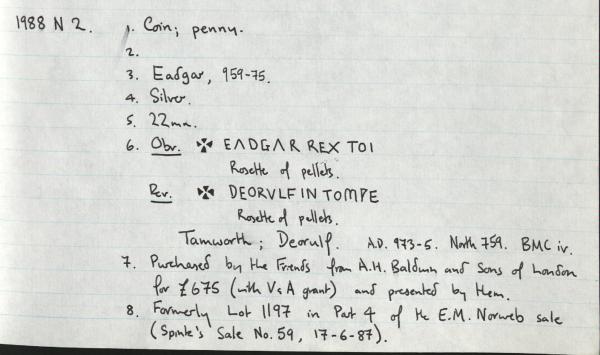 1988 N 2. 1. Coin; penny.
2.
3. Eadgar, 959-75.
4. Silver.
5. 22mm.
6. Obv. ✠ EADGAR REX TOI
Rosette of pellets.
Rev. ✠ DEORVLF IN TOMPE
Rosette of pellets.
Tamworth; Deorulf. A.D. 973-5. North 759. BMC iv.
7. Purchased by the Friends from A.H. Baldwin and Sons of London
for £675 (with V&A grant) and presented by them.
8. Formerly Lot 1197 in Part 4 of the E.M. Norweb sale
(Spink's Sale No. 59, 17-6-87).